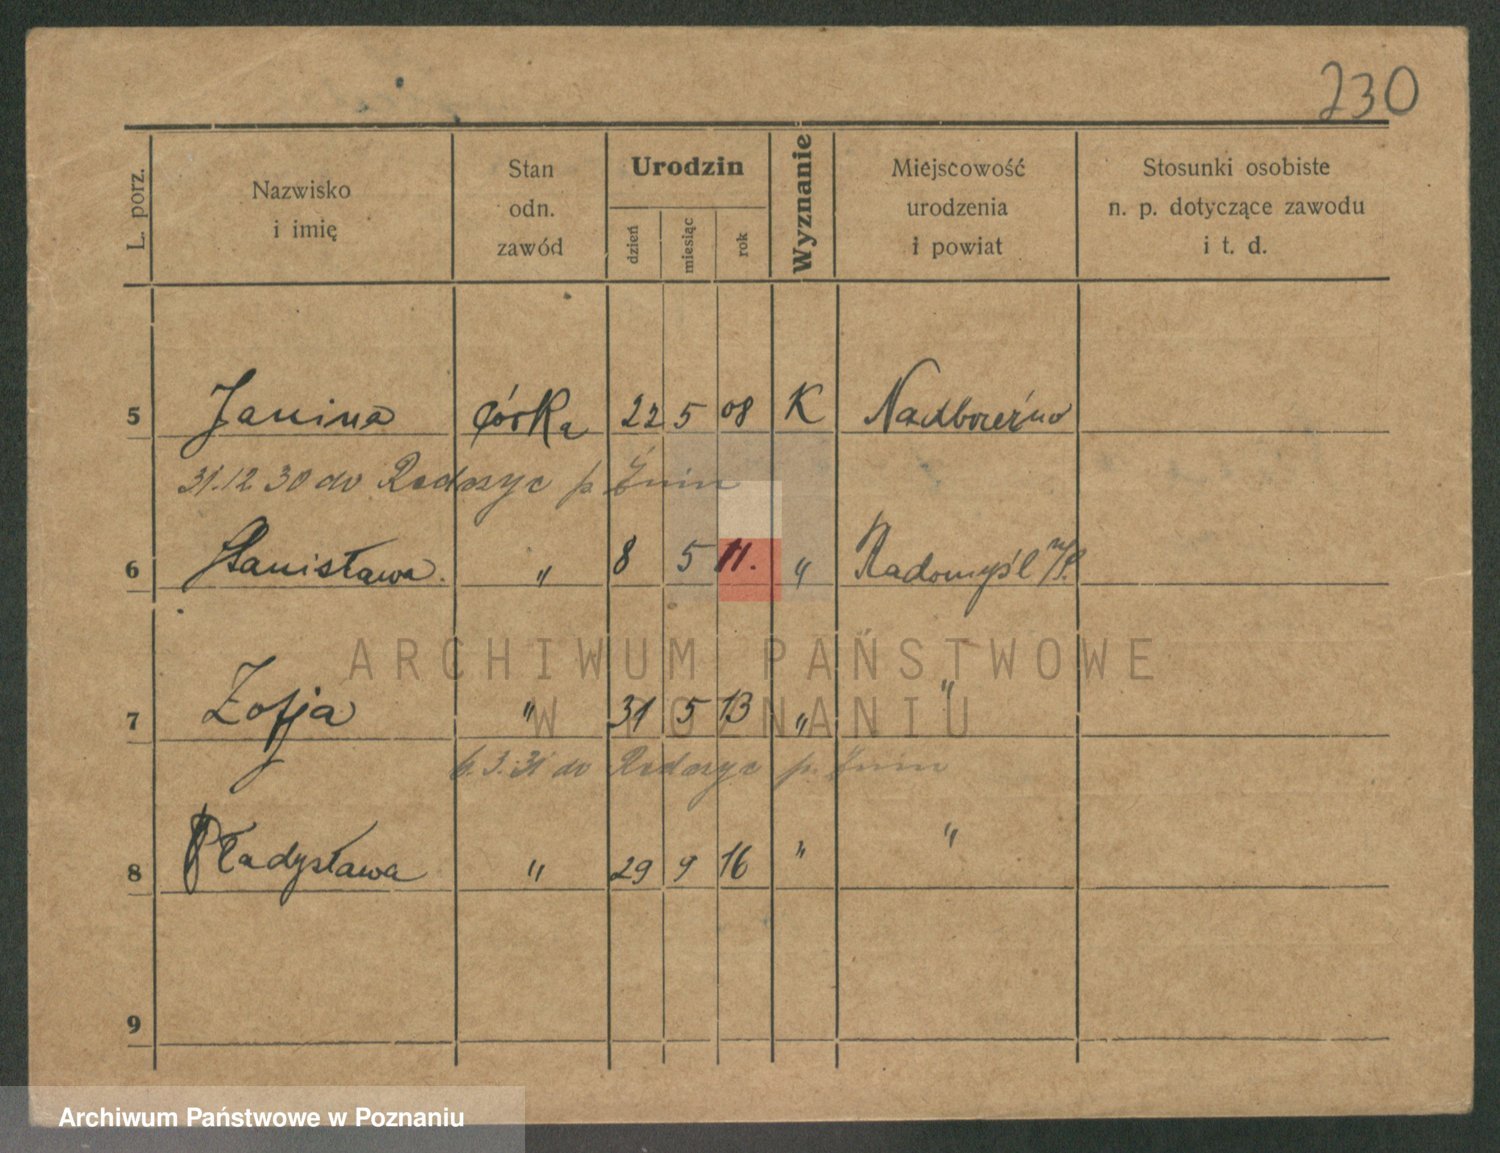 230
L. porz.
Nazwisko
i imię
Stan
odn.
zawód
Urodzin
dzień
miesiąc
rok
Wyznanie
Miejscowość
urodzenia
i powiat
Stosunki osobiste
n. p. dotyczące zawodu
i t. d.
5 Janina córka 22 5 08 K Nadbrzeźno
31.12 30 do Redszyc p. Żnin
6 Stanisława. " 8 5 11. " Radomyśl n/S.
ARCHIWUM PAŃSTWOWE
W POZNANIU
7 Zofja " 31 5 13 " "
6. 3. 31 do p. Żnin
8 Władysława " 29 9 16 " "
9
Archiwum Państwowe w Poznaniu